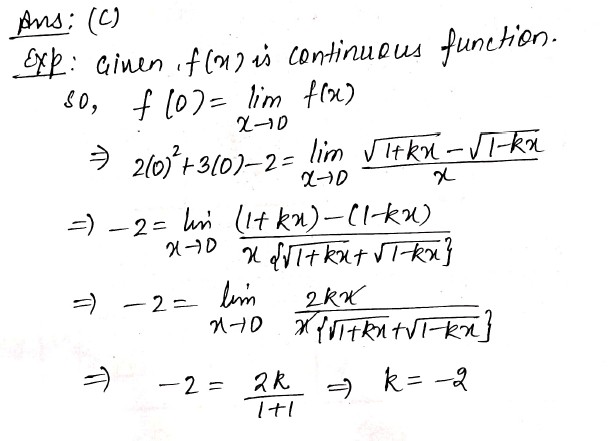 Ans: (C)
Exp: Given, f(x) is continuous function.
so, f(0) = lim x→0 f(x)
⇒ 2(0)²+3(0)-2 = lim x→0 (√1+kx - √1-kx)/x
⇒ -2 = lim x→0 ((1+kx)-(1-kx))/(x{√1+kx + √1-kx})
⇒ -2 = lim x→0 2kx/(x{√1+kx+√1-kx})
⇒ -2 = 2k/(1+1) ⇒ k = -2